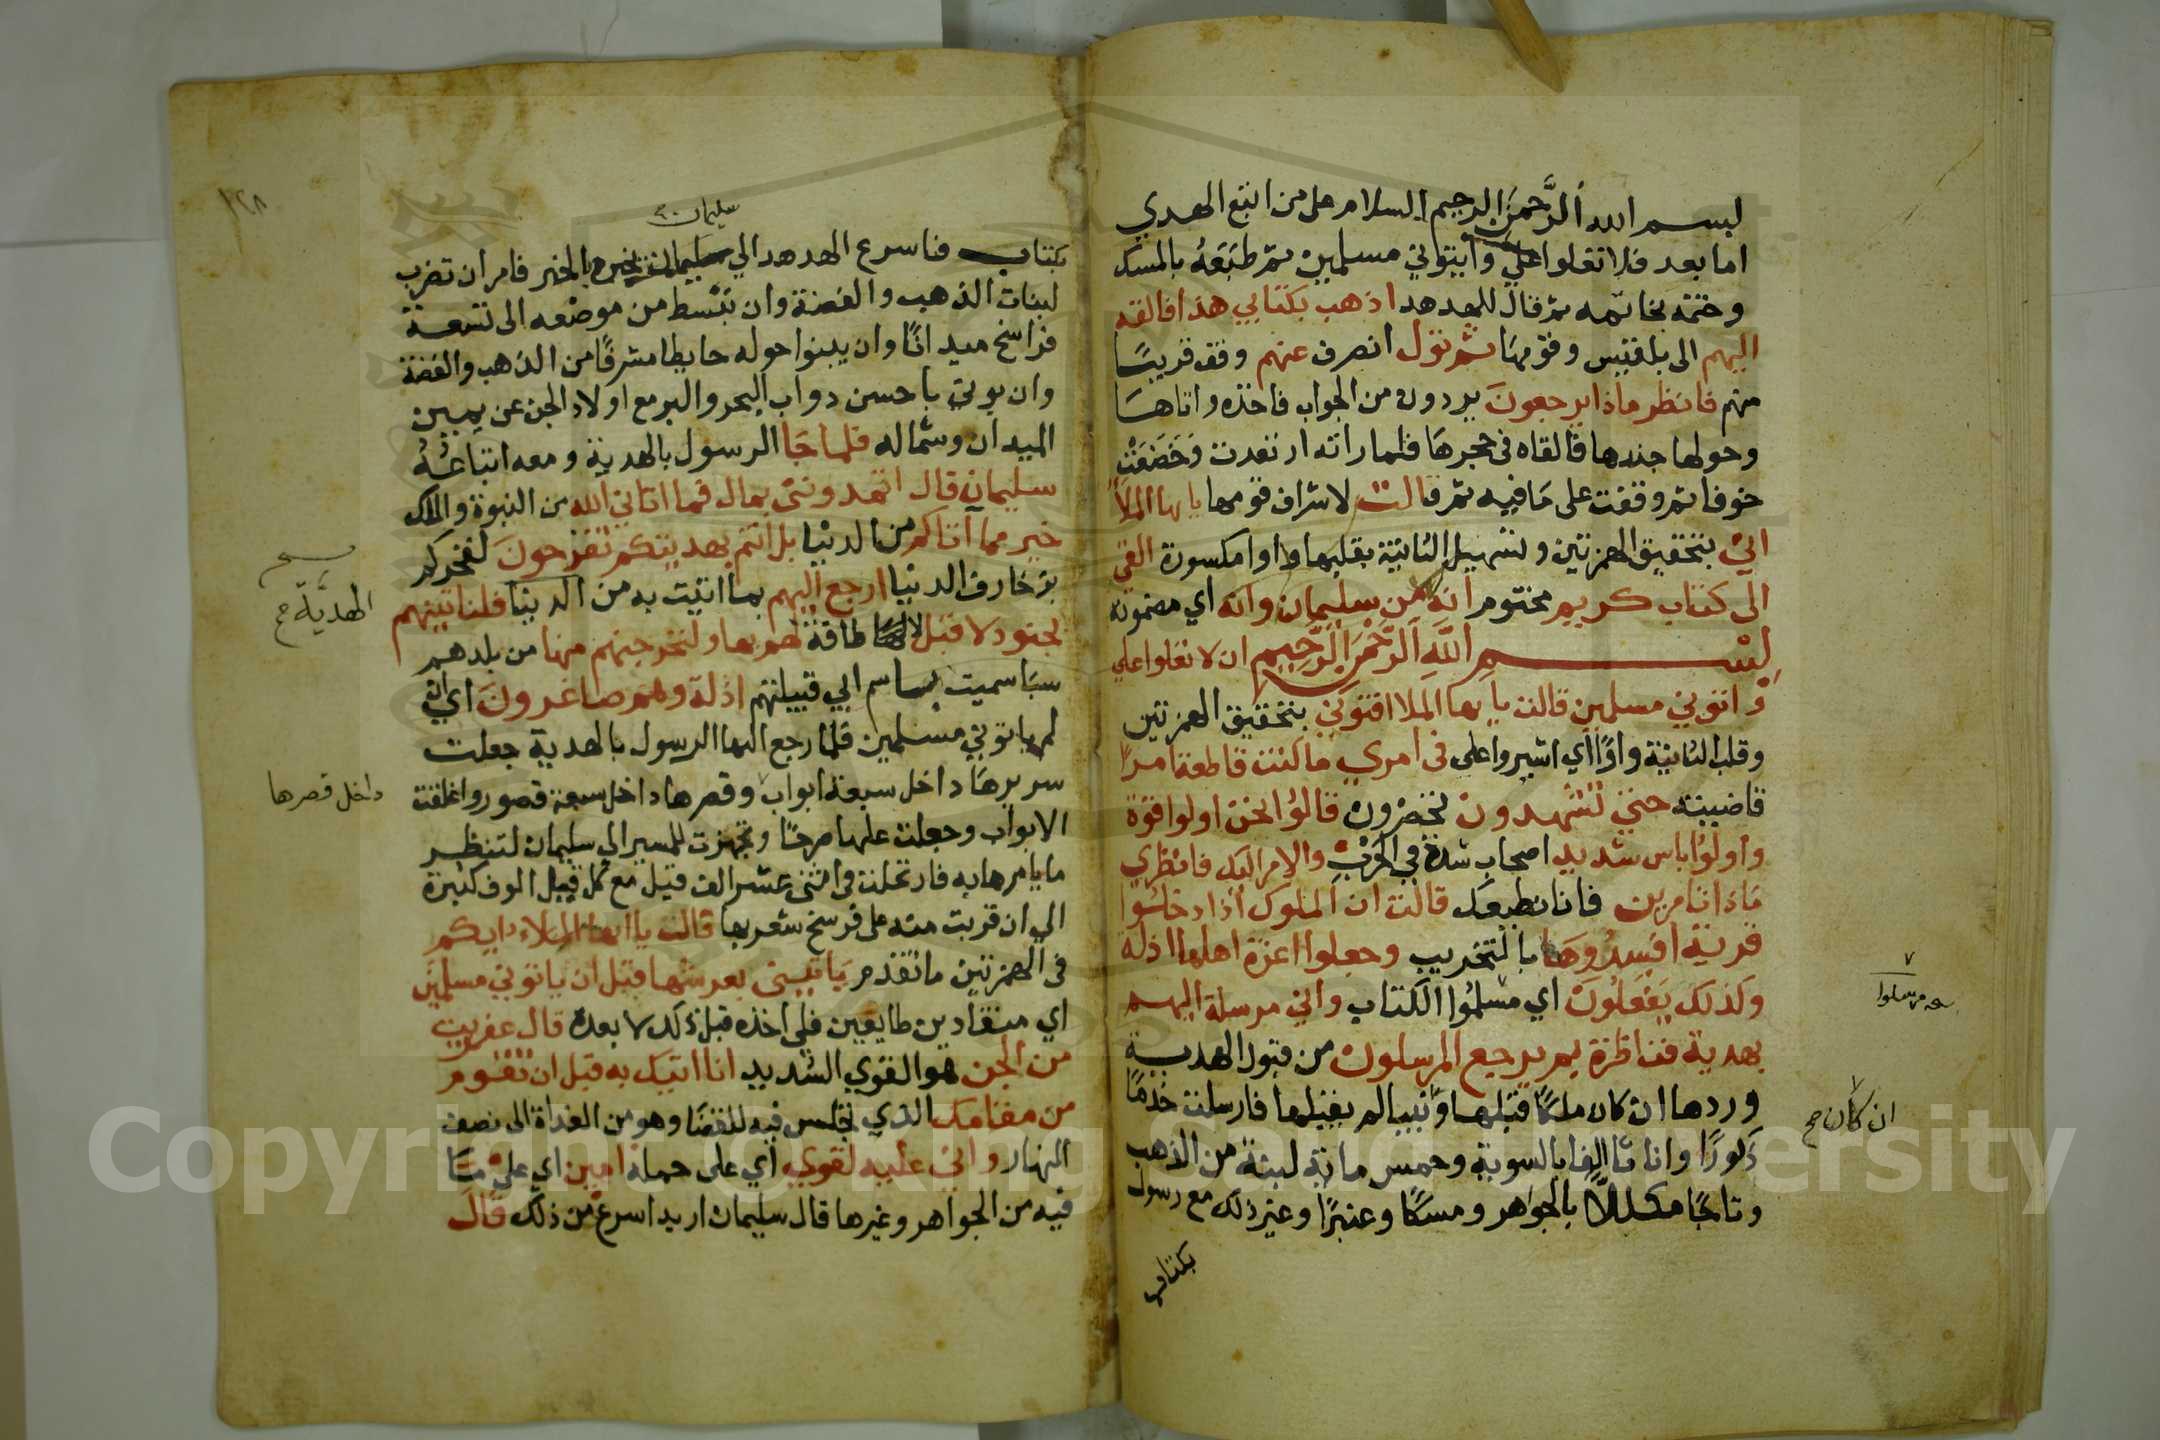 بسم الله الرَّحمن الرحيم السلام على من اتبع الهدي
اما بعد فلا تعلوا علي وأتوني مسلمين ثم طبَعَهُ بالمسك
وختمه بخاتمه ثم قال للهدهد اذهب بكتابي هذا فالقه
اليهم الى بلقيس وقومها ثم تول انصرف عنهم وقف قريبًا
منهم فانظر ماذا يرجعونَ يردون من الجواب فاخذه واتاها
وحولها جندها فالقاه في حجرها فلما راته ارتعدت وَخَضَعَتْ
خوفا ثم وقفت على مَا فيه ثم قالت لاشراف قومها يا يها الملأ
اني بتحقيق الهمزتين وتسهيل الثانية بقلبها واوا مكسورة القي
الَي كتاب كريم مختوم انه من سليمان وانه اي مضمونه
بِسْمِ اللَّهِ الرَّحْمَنِ الرَّحِيمِ ان لا تعلوا علي
وَاتوني مسلمين قالت يايها الملا افتوني بتحقيق الهمزتين
وقلب الثانية واوًا اي اشيروا على في امري ما كنت قاطعة امرًا
قاضيته حتي تشهدون تحضرون قالوُا نحن اولوا قوة
واولوُا باس شديد اصحاب شدة في الحَرْبِ والامر اليك فانظري
مَاذا تامرين فانا نطيعك قالت ان الملوك اذا دخلُوا
قرية افسدُوهَا بالتخريب وجعلوا اعزة اهلها اذلة
وكذلك يَفْعَلُونَ اي مسلموا الكتاب واني مرسلة اليهم
بهدية فناظرة بم يرجع المرسلون من قبول الهدية
وردها ان كان ملكًا قبلها وَنبيا لم يقبلها فارسلت خدمًا
ذكورًا واناثا الفا بالسوية وخمس ماية لبنة من الذهب
وتاجًا مكللًا بالجواهر ومسكًا وعنبرًا وغير ذلك مع رسول
بكتاب
مرسلوا
ان كان صح
١٢٨
سليمان
بكتاب فاسرع الهدهد الي سليمان يخبره بالخبر فامر ان تضرب
لبنات الذهب والفضة وان تبسط من موضعه الى تسعة
فراسخ ميدانًا وان يبنوا حوله حايطا مشرفًا من الذهب والفضة
وان يوتي باحسن دواب البحر والبر مع اولاد الجن عن يمين
الميدان وشماله فلما جَا الرسول بالهدية ومعه اتباعُهُ
سليمان قال اتمدونني بمال فما اتاني الله من النبوة والملك
خير مما اتاكم من الدنيا بل انتم بهديتكم تفرحونَ لفخركم
بزخارف الدنيا ارجع اليهم بما اتيت به من الدنيا فلناتينهم
بجنود لا قبل لا طاقة لهم بها ولنخرجنهم منها من بلدهم
سبَا سميت باسم ابي قبيلتهم اذلة وهم صاغرونَ اي ان
لم ياتوني مسلمين فلما رجع اليها الرسول بالهدية جعلت
سريرهَا داخل سبعة ابواب وقصرها داخل سبعة قصور واغلقت
الابواب وجعلت عليها حرسًا وتجهزت للمسير الي سليمان لتنظر
ما يامرها به فارتحلت في اثنى عشر الف قيل مع كل قيل الوف كثيرة
الي ان قربت منه على فرسخ شعر بها قالت يا ايها الملاء ايكم
في الهمزتين ما تقدم يَاتيني بعرشها قبل ان ياتوني مسلمين
اي منقادين طايعين فلي اخذه قبل ذلك لا بعده قال عفريت
من الجن هو القوي الشديد انا اتيك به قبل ان تقوم
من مقامك الذي تجلس فيه للقضَا وهو من الغداة الى نصف
النهار واني عليه لقوي اي على حمله امين اي على مَا
فيه من الجواهر وغيرها قال سليمان اريد اسرع من ذلك قال
الهديَّة صح
داخل قصرها
Copyright © King Saud University